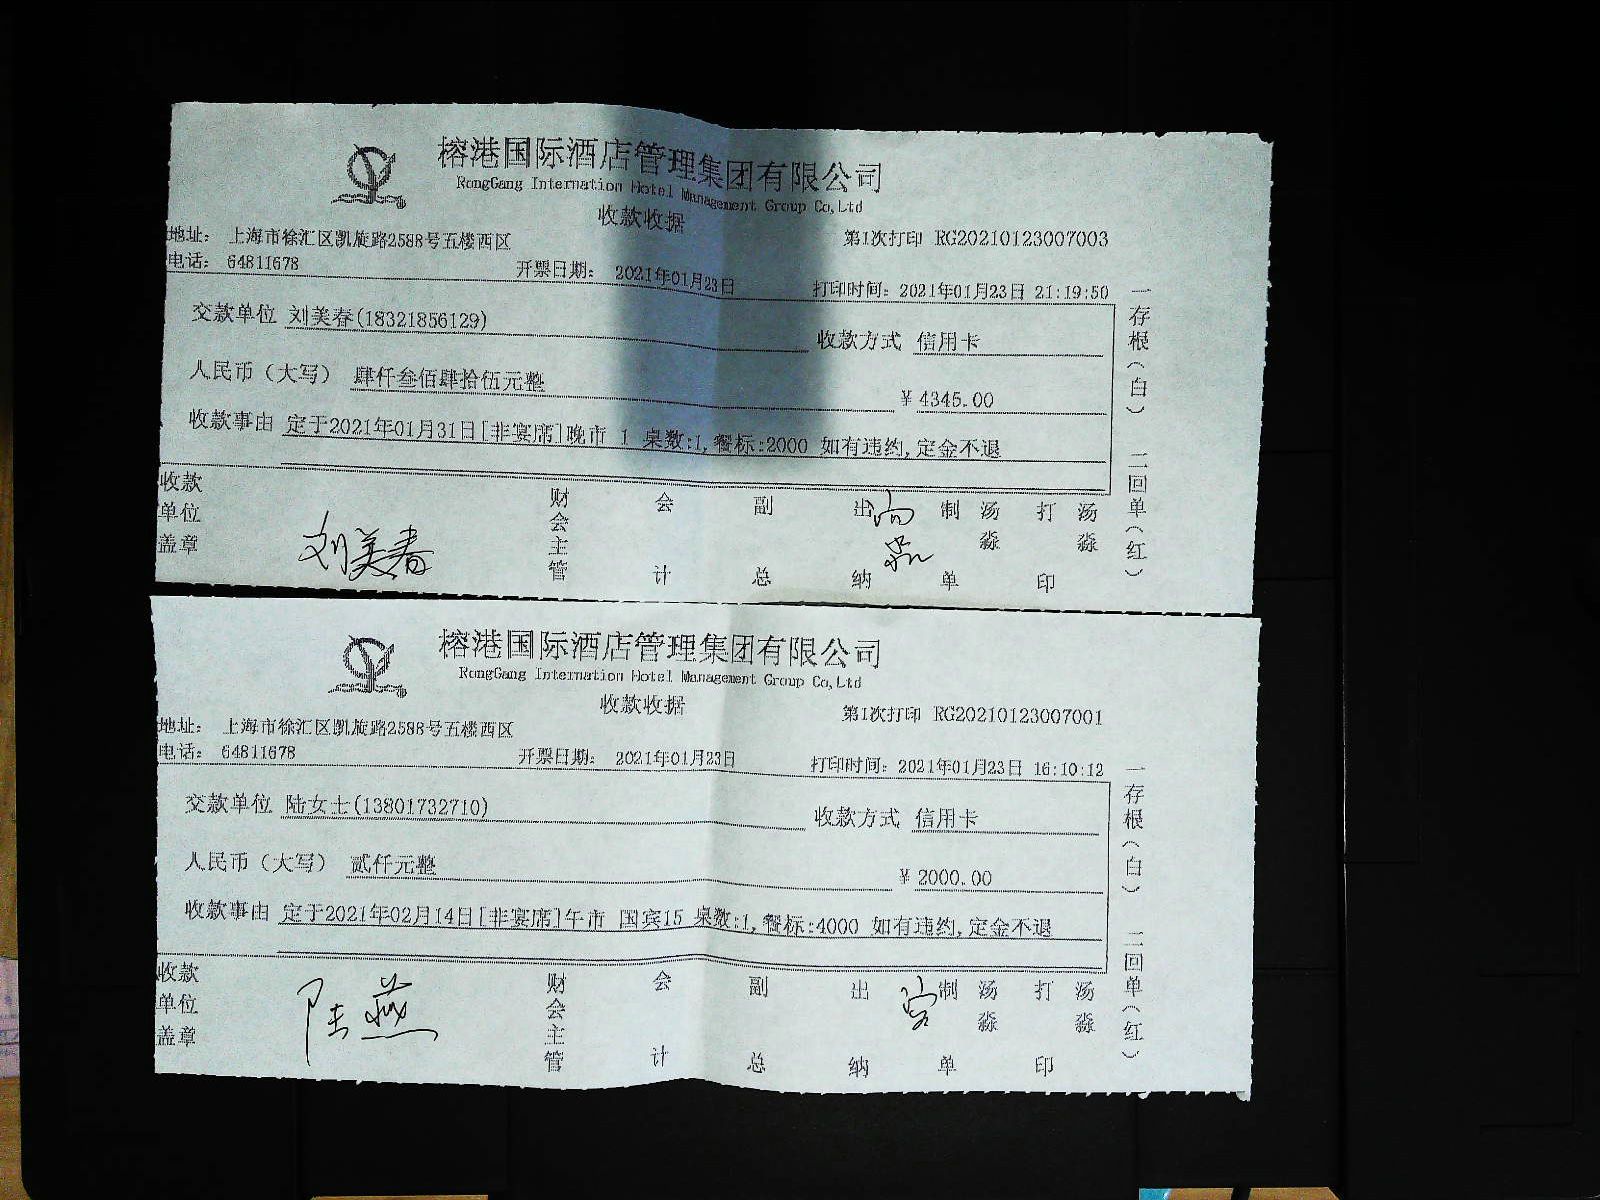 榕港国际酒店管理集团有限公司
RongGang Internation Hotel Management Group Co,Ltd
收款收据
地址： 上海市徐汇区凯旋路2588号五楼西区
第1次打印 RG20210123007003
电话： 64811678 开票日期： 2021年01月23日 打印时间：2021年01月23日 21:19:50
交款单位 刘美春(18321856129) 收款方式 信用卡
人民币（大写） 肆仟叁佰肆拾伍元整 ¥ 4345.00
收款事由 定于2021年01月31日[非宴席]晚市 1 桌数:1,餐标:2000 如有违约,定金不退
收款单位盖章 刘美春 财会主管 会计 副总 出纳 制单 汤淼 打印 汤淼
一存根（白） 二回单（红）
榕港国际酒店管理集团有限公司
RongGang Internation Hotel Management Group Co,Ltd
收款收据
地址： 上海市徐汇区凯旋路2588号五楼西区
第1次打印 RG20210123007001
电话： 64811678 开票日期： 2021年01月23日 打印时间：2021年01月23日 16:10:12
交款单位 陆女士(13801732710) 收款方式 信用卡
人民币（大写） 贰仟元整 ¥ 2000.00
收款事由 定于2021年02月14日[非宴席]午市 国宾15 桌数:1,餐标:4000 如有违约,定金不退
收款单位盖章 陆燕 财会主管 会计 副总 出纳 制单 汤淼 打印 汤淼
一存根（白） 二回单（红）